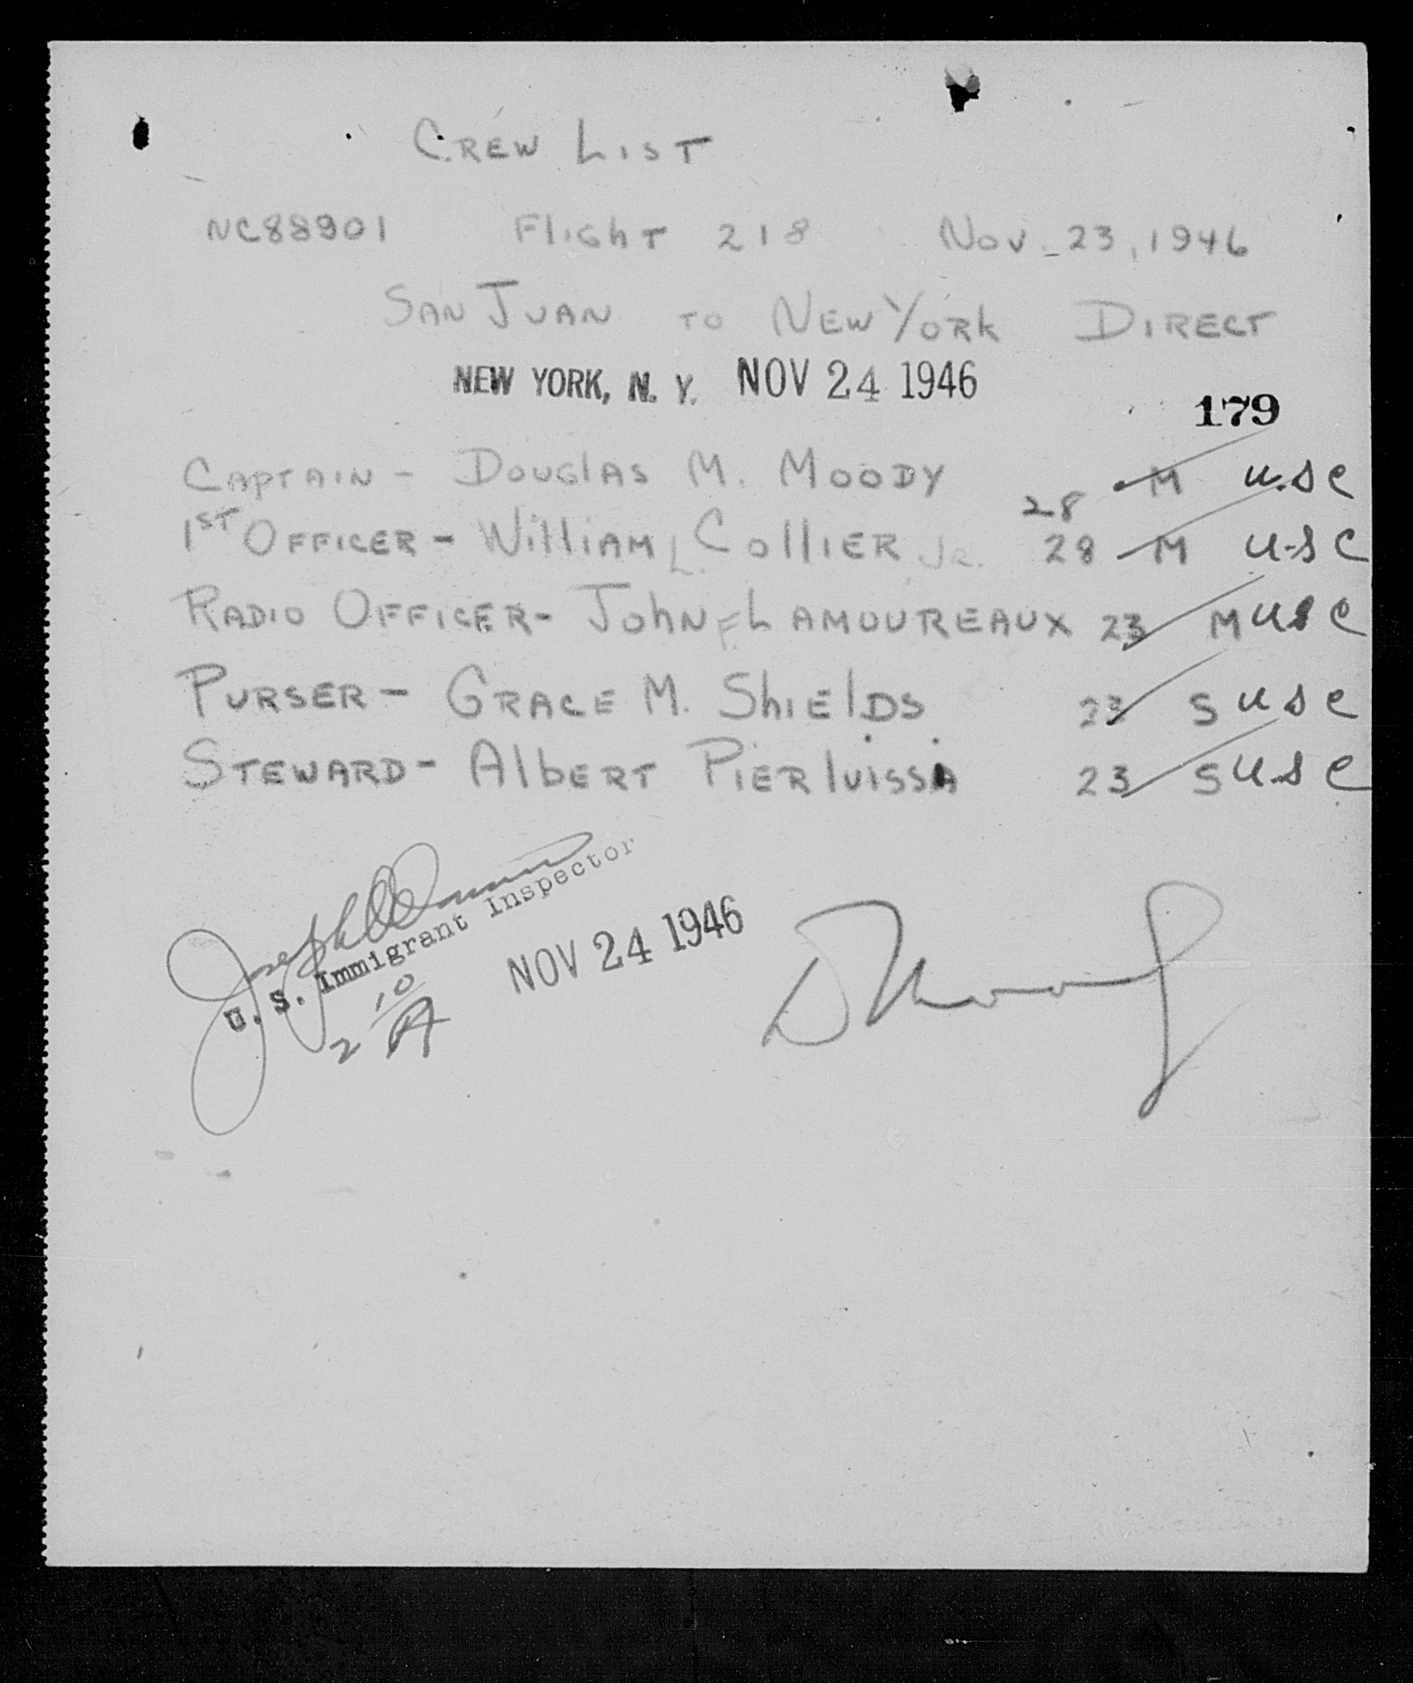 CREW LIST
NC88901 Flight 218 Nov. 23, 1946
SAN JUAN TO NEW YORK DIRECT
NEW YORK, N. Y. NOV 24 1946
179
CAPTAIN - DOUGLAS M. MOODY 28 M U.S.C
1ST OFFICER - WILLIAM L. COLLIER JR. 28 M U.S.C
RADIO OFFICER - JOHN F LAMOUREAUX 23 M USC
PURSER - GRACE M. SHIELDS 23 S USC
STEWARD - ALBERT PIERLUISSA 23 S USC
Joseph
U. S. Immigrant Inspector
NOV 24 1946
2 10 A
D Moody